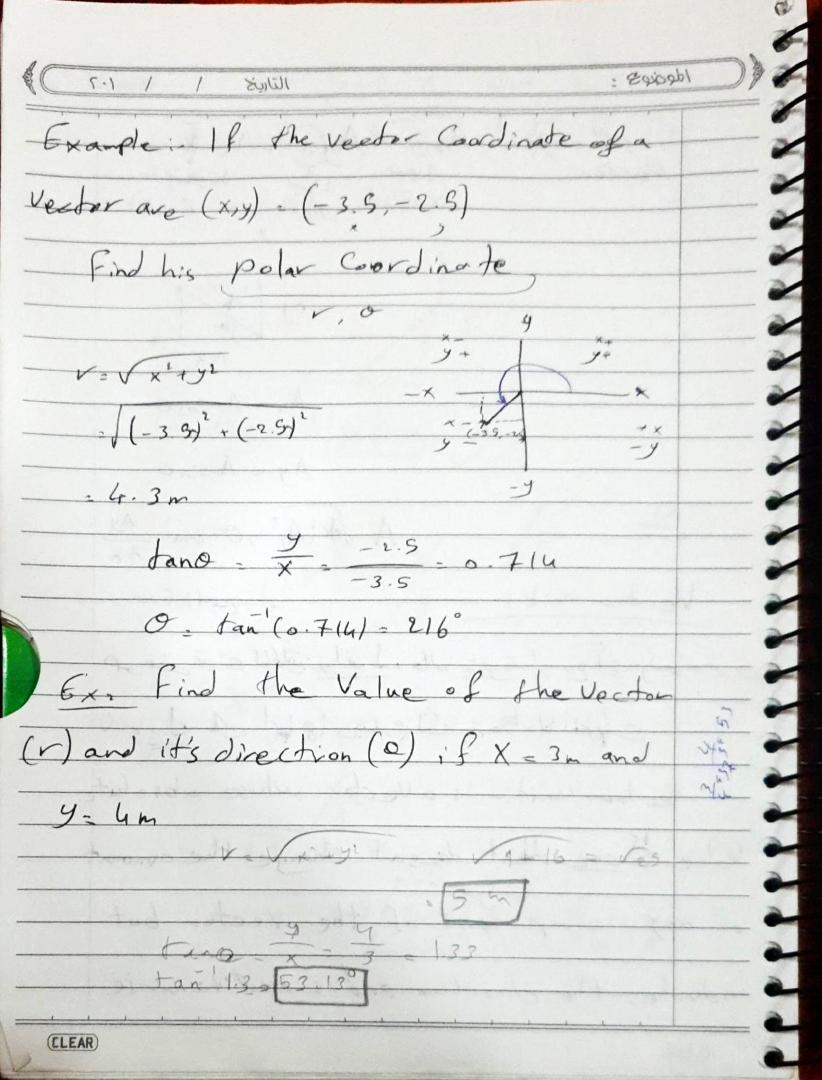 الموضوع :
التاريخ / / ٢٠١
Example:- If the Vector Coordinate of a
Vector are (x,y) = (-3.5,-2.5)
Find his polar Coordinate
r, θ
r = √x²+y²
= √(-3.5)² + (-2.5)²
= 4.3m
y
x- y+
x+ y+
-x
x
x- y-
(-3.5,-2.5)
+x -y
-y
tanθ = y/x = -2.5/-3.5 = 0.714
θ = tan⁻¹(0.714) = 216°
Ex: Find the Value of the Vector
(r) and it's direction (θ) if X = 3m and
y = 4m
r = √x²+y² √9+16 = √25
= 5 m
tanθ = y/x = 4/3 = 1.33
tan⁻¹ 1.3 = 53.13°
CLEAR